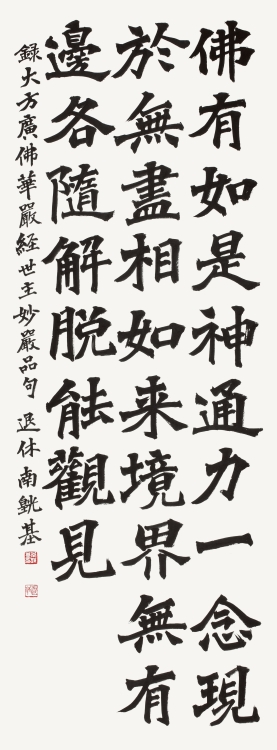 佛有如是神通力一念現
於無盡相如来境界無有
邊各隨解脱能觀見
録大方廣佛華嚴経世主妙嚴品句 退休南
基